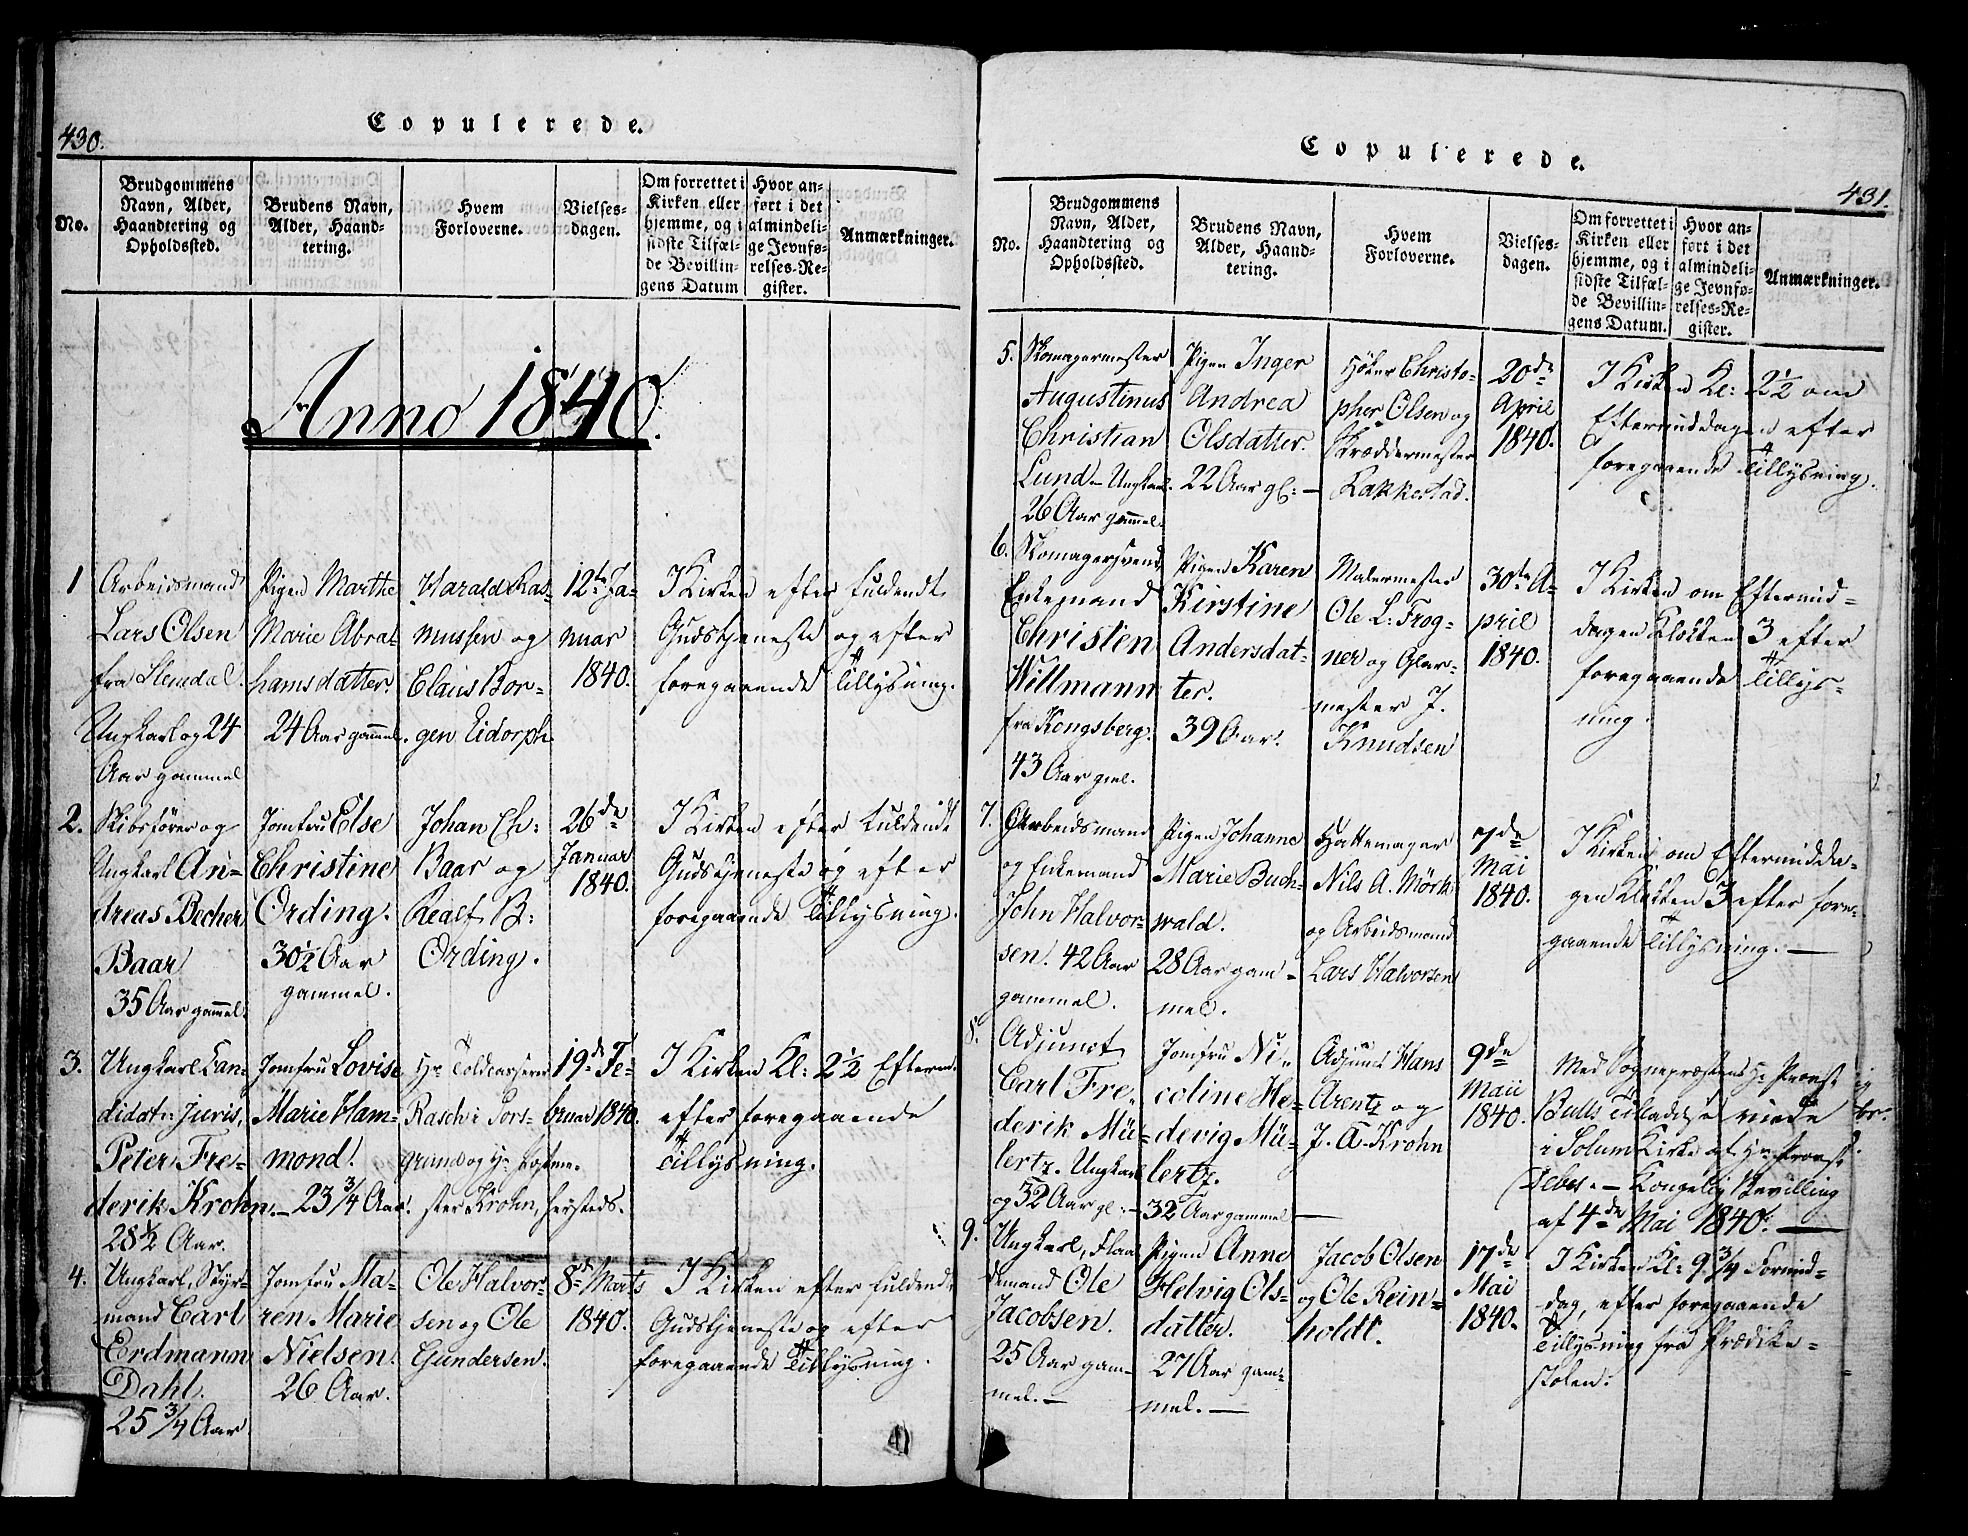 430.
Copulerede.
No.
Brudgommens
Navn, Alder,
Haandtering og
Opholdssted.
Brudens Navn,
Alder, Haand-
tering.
Hvem
Forloverne.
Vielses-
dagen.
Om forrettet i
Kirken eller
hjemme, og i
sidste Tilfæl-
de Bevillin-
gens Datum
Hvor an-
ført i det
almindeli-
ge Jevnfø-
relses-Re-
gister.
Anmærkninger.
Anno 1840.
1
Arbeidsmand
Lars Olsen
fra Slemdal.
Ungkarl og 24
Aar gammel
Pigen Marthe
Marie Abra-
hamsdatter.
24 Aar gammel.
Harald Ras-
mussen og
Claus Bor-
gen Eidorph
12te Ja-
nuar
1840.
I Kirken efter fuldendt
Gudstjeneste og efter
foregaaende Tillysning.
2.
Skibsfører og
Ungkarl An-
dreas Becher
Baar
35 Aar gammel.
Jomfru Else
Christine
Ording.
30½ Aar
gammel.
Johan Ch:
Baar og
Realf B:
Ording.
26de
Januar
1840.
I Kirken efter fuldendt
Gudstjeneste og efter
foregaaende Tillysning.
3.
Ungkarl Can-
didat: Juris,
Peter Fre-
derik Krohn.
28½ Aar.
Jomfru Lovise
Marie Ham-
mond.
23¾ Aar.
Hr Toldcasserer
Rasch i Pors-
grund og Hr Postme-
ster Krohn, hersteds.
19de Fe-
bruar 1840.
I Kirken Kl: 2½ Efterm.
efter foregaaende
Tillysning.
4.
Ungkarl, Styr-
mand Carl
Erdmann
Dahl.
25¾ Aar
Jomfru Ma-
ren Marie
Nielsen.
26 Aar.
Ole Halvor-
sen og Ole
Gundersen.
8de Marts
1840.
I Kirken efter fuldendt
Gudstjeneste og efter
foregaaende Tillysning.
431.
Copulerede.
No.
Brudgommens
Navn, Alder,
Haandtering og
Opholdssted.
Brudens Navn,
Alder, Haand-
tering.
Hvem
Forloverne.
Vielses-
dagen.
Om forrettet i
Kirken eller
hjemme, og i
sidste Tilfæl-
de Bevillin-
gens Datum.
Hvor an-
ført i det
almindeli-
ge Jevnfø-
relses-Re-
gister.
Anmærkninger.
5.
Skomagermester
Augustinus
Christian
Lund – Ungkarl.
26 Aar gammel.
Pigen Inger
Andrea
Olsdatter.
22 Aar gl: –
Høker Christo-
pher Olsen og
Skræddermester
Kakkestad.
20de
April
1840.
I Kirken Kl: 2½ om
Eftermiddagen efter
foregaaende Tillysning.
6.
Skomagersvend
Enkemand
Christen
Willmann
fra Kongsberg.
43 Aar gml.
Pigen Karen
Kirstine
Andersdat-
ter.
39 Aar.
Malermester
Ole L: Frog-
ner og Glar-
mester J.
Knudsen
30te A-
pril
1840.
I Kirken om Eftermid-
dagen Klokken 3 efter
foregaaende Tillys-
ning.
7.
Arbeidsmand
og Enkemand
John Halvor-
sen. 42 Aar
gammel.
Pigen Johanne
Marie Buch-
wald.
28 Aar gam-
mel.
Hattemager
Nils A. Mörch
og Arbeidsmand
Lars Halvorsen
7de
Mai
1840.
I Kirken om Eftermidda-
gen Klokken 3 efter fore-
gaaende Tillysning. –
8.
Adjunct
Carl Fre-
derik Mü-
lertz. Ungkarl
og 32 Aar gl: –
Jomfru Ni-
coline He-
devig Mü-
lertz.
32 Aar gammel –
Adjunct Hans
Arentz og
J. A. Krohn
9de
Maii
1840.
Med Sognepræstens Hr Provst
Bulls Tilladelse viede
i Solum Kirke af Hr Provst
Debes. – Kongelig Bevilling
af 4de Mai 1840. –
9.
Ungkarl, Flaa-
demand Ole
Jacobsen.
25 Aar gam-
mel. –
Pigen Anne
Helvig Ols-
datter.
27 Aar gam-
mel. –
Jacob Olsen
og Ole Rein-
holdt.
17de
Mai
1840.
I Kirken Kl: 9¾ Formid-
dag, efter foregaaende
Tillysning fra Prædike-
stolen.